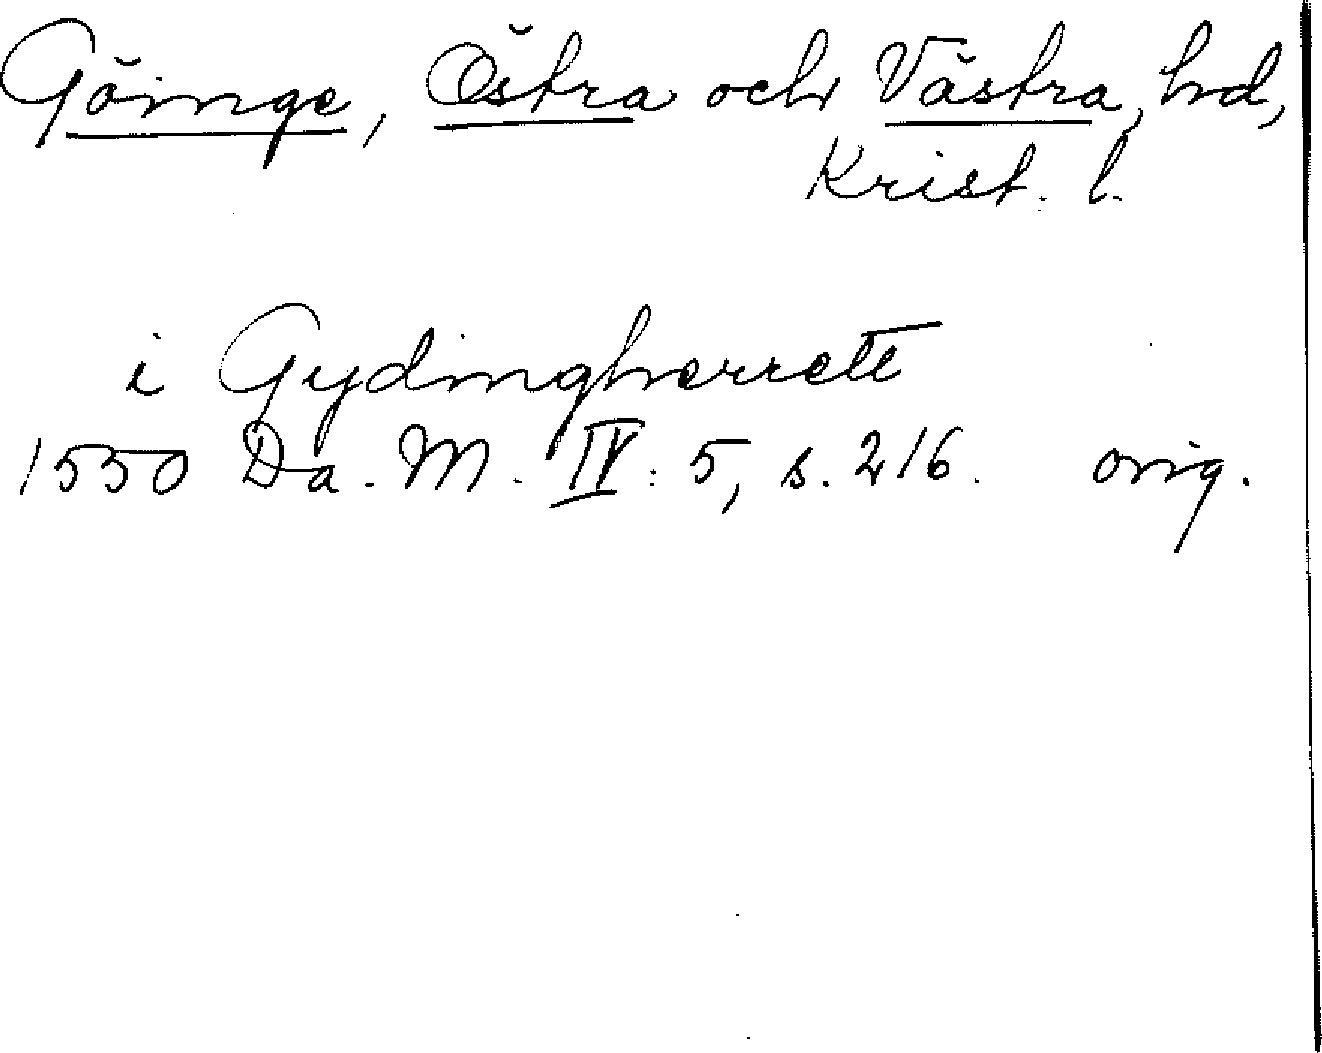 Göinge, Östra och Västra, hd,
Krist. l.
i Gydingherrett
1550 Da. M. IV: 5, s. 216. orig.